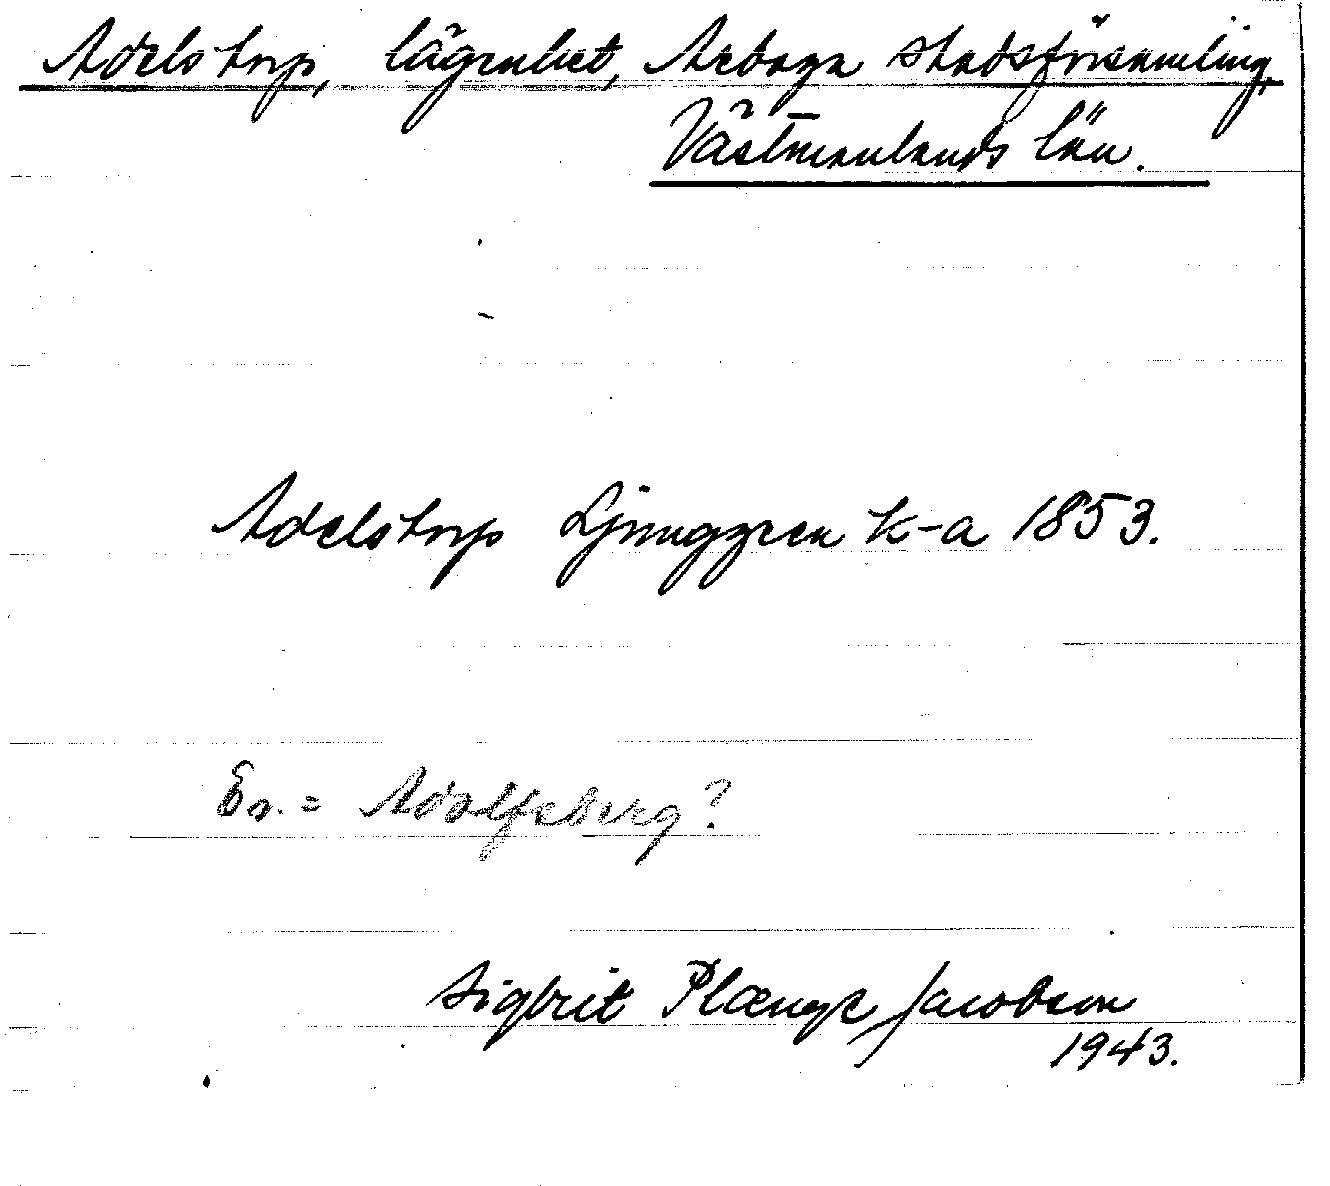 Adelstorp, lägenhet, Arboga stadsförsamling,
Västmanlands län.
Adelstorp Ljunggren k-a 1853.
Ev. = Adolfsberg?
Sigbrit Plænge Jacobson
1943.